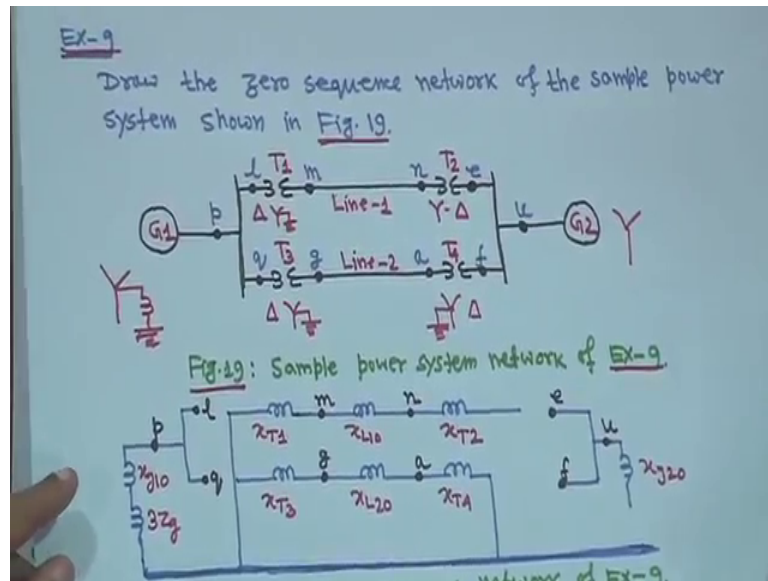 EX-9
Draw the zero sequence network of the sample power
system shown in Fig. 19.
l T1 m n T2 e
p G1 Δ Y Line-1 Y-Δ u G2 Y
q T3 g Line-2 a T4 f
Y Δ Y Y Δ
Fig.19: Sample power system network of EX-9
p l m n e
xT1 xL10 xT2 u
xg10 q g a f xg20
3Zg xT3 xL20 xT4
network of EX-9